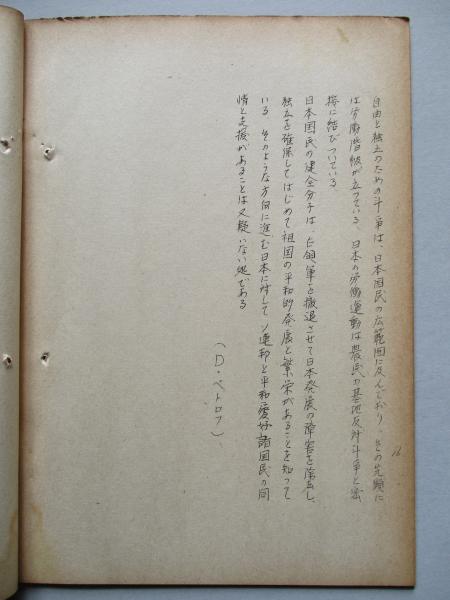 自由と独立のための斗争は、日本国民の広範囲に及んでおり、その先頭に
は労働階級が立つている、日本の労働運動は農民の基地反対斗争と密
接に結びついている、
日本国民の健全分子は、占領軍を撤退させて日本発展の障害を除去し、
独立を確保してはじめて祖国の平和的発展と繁栄があることを知つて
いる、そのような方向に進む日本に対してソ連邦と平和愛好諸国民の同
情と支援があることは又疑いない処である
（D・ペトロフ）、
16